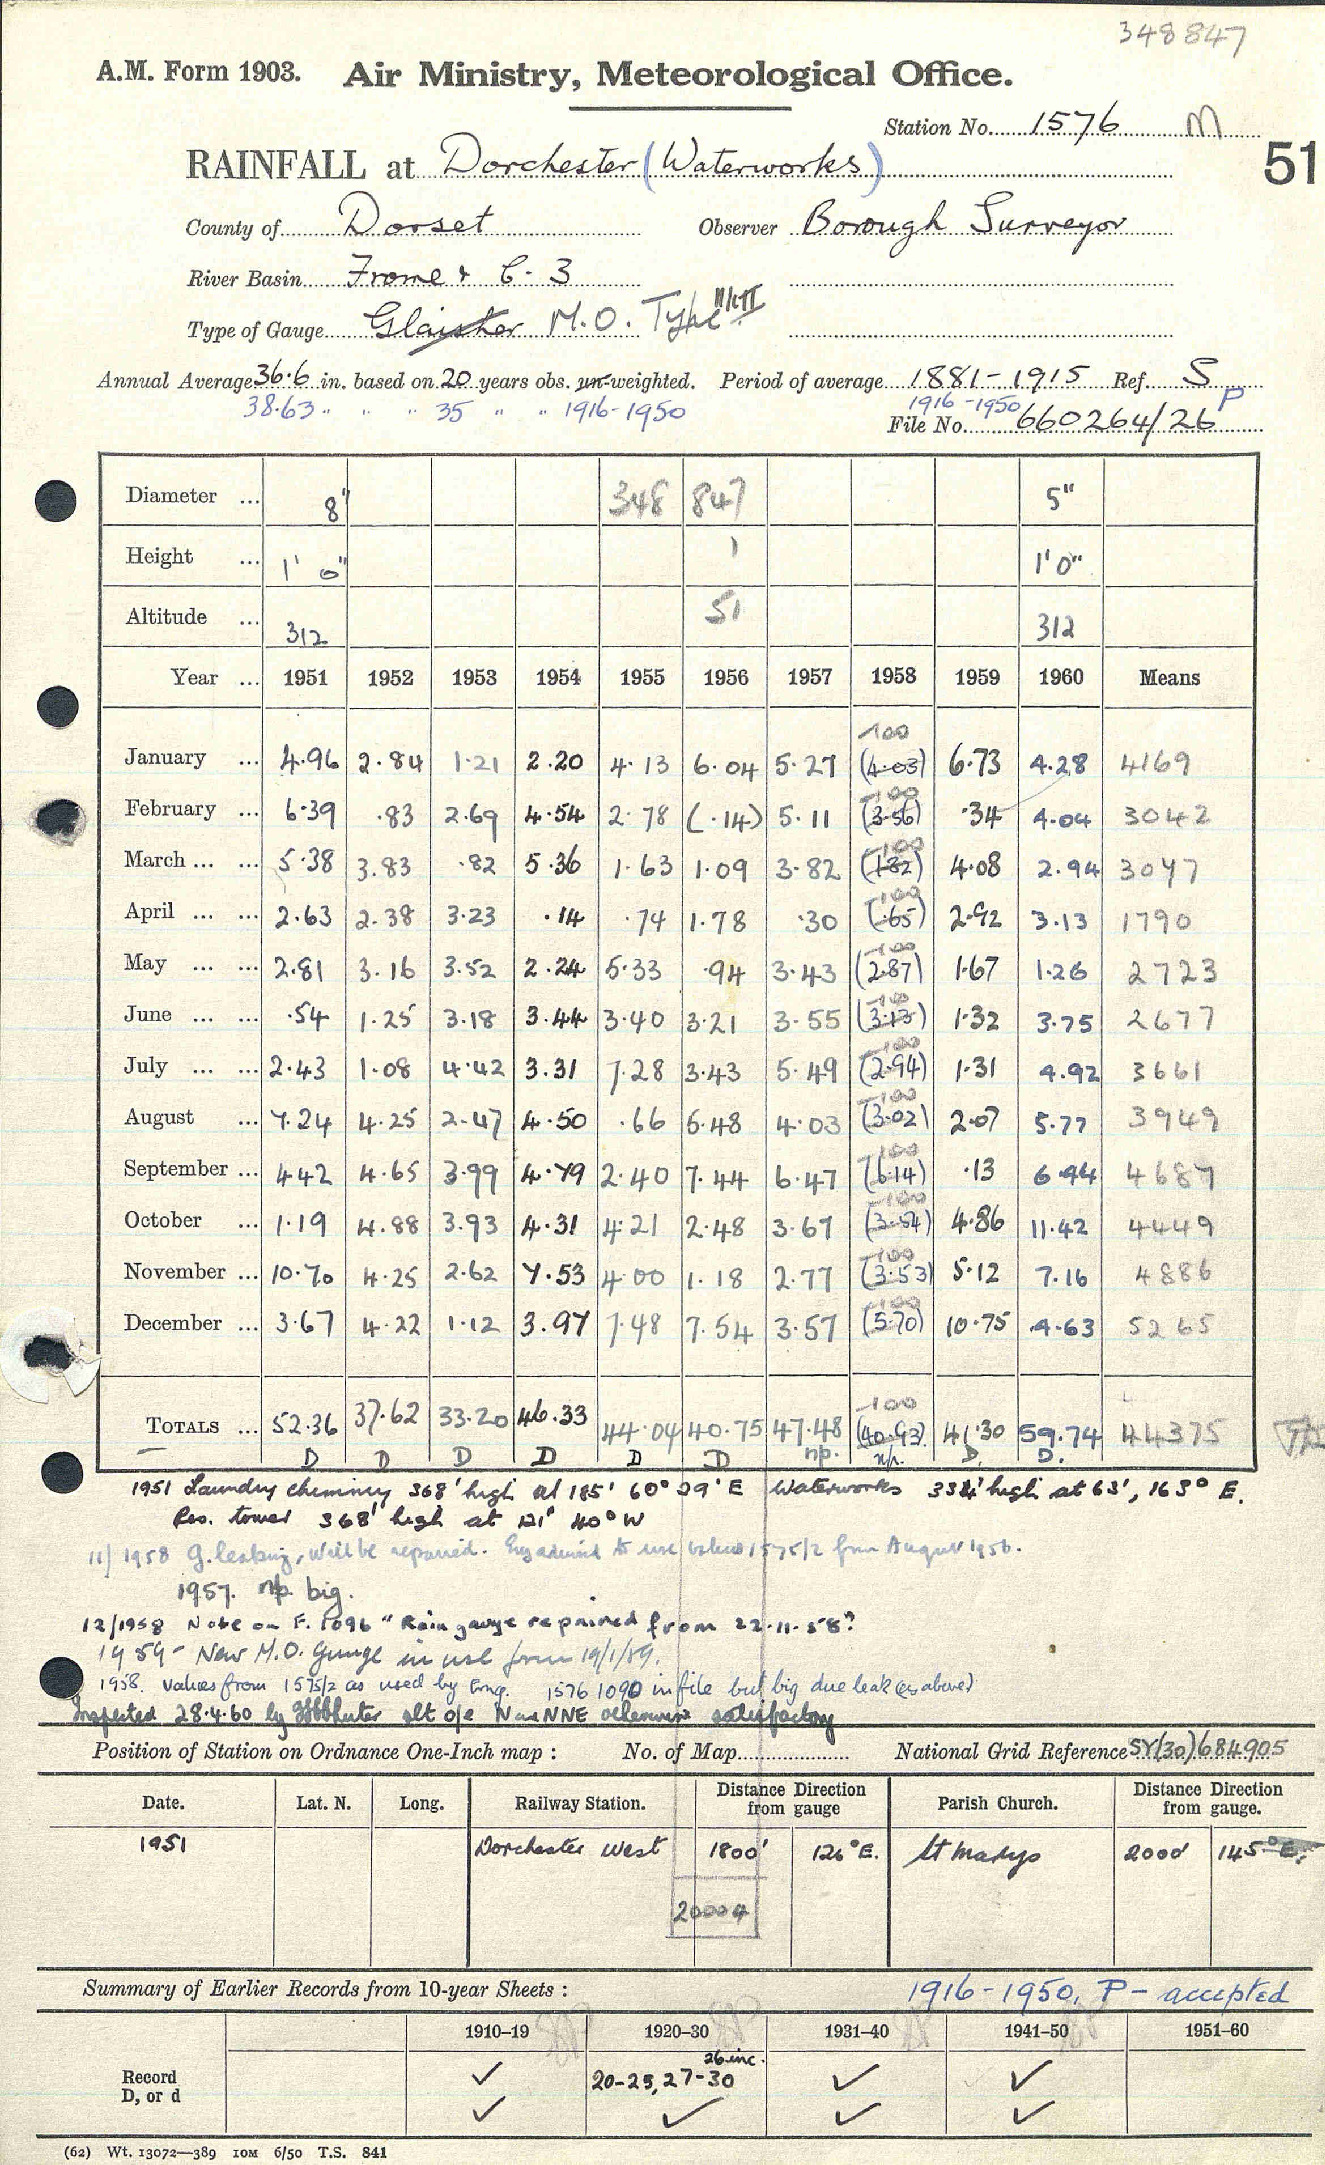 348847
A.M. Form 1903. Air Ministry, Meteorological Office.
Station No. 1576 M
51
RAINFALL at Dorchester (Waterworks)
County of Dorset Observer Borough Surveyor
River Basin Frome & C. 3
Type of Gauge Glaisher M.O. Type
Annual Average 36.6 in. based on 20 years obs. un-weighted. Period of average 1881-1915 Ref. S
38.63 " " " 35 " " 1916-1950 1916-1950 P
File No. 660264/26
Diameter ... 8" 348 847 5"
Height ... 1' 0" 1 1'0"
Altitude ... 312 51 312
Year ... 1951 1952 1953 1954 1955 1956 1957 1958 1959 1960 Means
-100
January ... 4.96 2.84 1.21 2.20 4.13 6.04 5.27 (4.03) 6.73 4.28 4169
-100
February ... 6.39 .83 2.69 4.54 2.78 (.14) 5.11 (3.56) .34 4.04 3042
-100
March ... ... 5.38 3.83 .82 5.36 1.63 1.09 3.82 (1.82) 4.08 2.94 3047
-100
April ... ... 2.63 2.38 3.23 .14 .74 1.78 .30 (.65) 2.92 3.13 1790
-100
May ... ... 2.81 3.16 3.52 2.24 5.33 .94 3.43 (2.87) 1.67 1.26 2723
-100
June ... ... .54 1.25 3.18 3.44 3.40 3.21 3.55 (3.13) 1.32 3.75 2677
-100
July ... ... 2.43 1.08 4.42 3.31 1.28 3.43 5.49 (2.94) 1.31 4.92 3661
-100
August ... 7.24 4.25 2.47 4.50 .66 5.48 4.03 (3.02) 2.07 5.77 3949
-100
September ... 4.42 4.65 3.99 4.79 2.40 7.44 6.47 (6.14) .13 6.44 4687
-100
October ... 1.19 4.88 3.93 4.31 4.21 2.48 3.67 (3.54) 4.86 11.42 4449
-100
November ... 10.70 4.25 2.62 7.53 4.00 1.18 2.77 (3.53) 5.12 7.16 4886
-100
December ... 3.67 4.22 1.12 3.97 7.48 7.54 3.57 (5.70) 10.75 4.63 5265
-100
TOTALS ... 52.36 37.62 33.20 46.33 44.04 40.75 47.48 (40.93) 41.30 59.74 44375
D D D D D D np. np. D. D.
1951 Laundry chimney 368' high at 185' 60° 29' E Waterworks 334' high at 63', 163° E.
Res. tower 368' high at 121' 40° W
11/1958 g. leaking, will be repaired. Eng advised to use values 1575/2 from August 1956.
1957. np. big.
12/1958 Note on F. 1096 "Rain gauge repaired from 22.11.58?
1959 - New M.O. Gauge in use from 19/1/59.
1958. Values from 1575/2 as used by Eng. 1576 1090 in file but big due leak (as above)
Inspected 28.4.60 by alt o/e N and NNE otherwise satisfactory
Position of Station on Ordnance One-Inch map : No. of Map National Grid Reference SY(30)684905
Date. Lat. N. Long. Railway Station. Distance from gauge Direction Parish Church. Distance from gauge. Direction
1951 Dorchester West 1800' 126° E. St Marys 2000' 145° E.
20004
Summary of Earlier Records from 10-year Sheets : 1916-1950, P - accepted
1910–19 1920–30 1931–40 1941–50 1951–60
26 inc.
Record ✓ 20-25, 27-30 ✓ ✓
D, or d ✓ ✓ ✓ ✓
(62) Wt. 13072—389 10M 6/50 T.S. 841